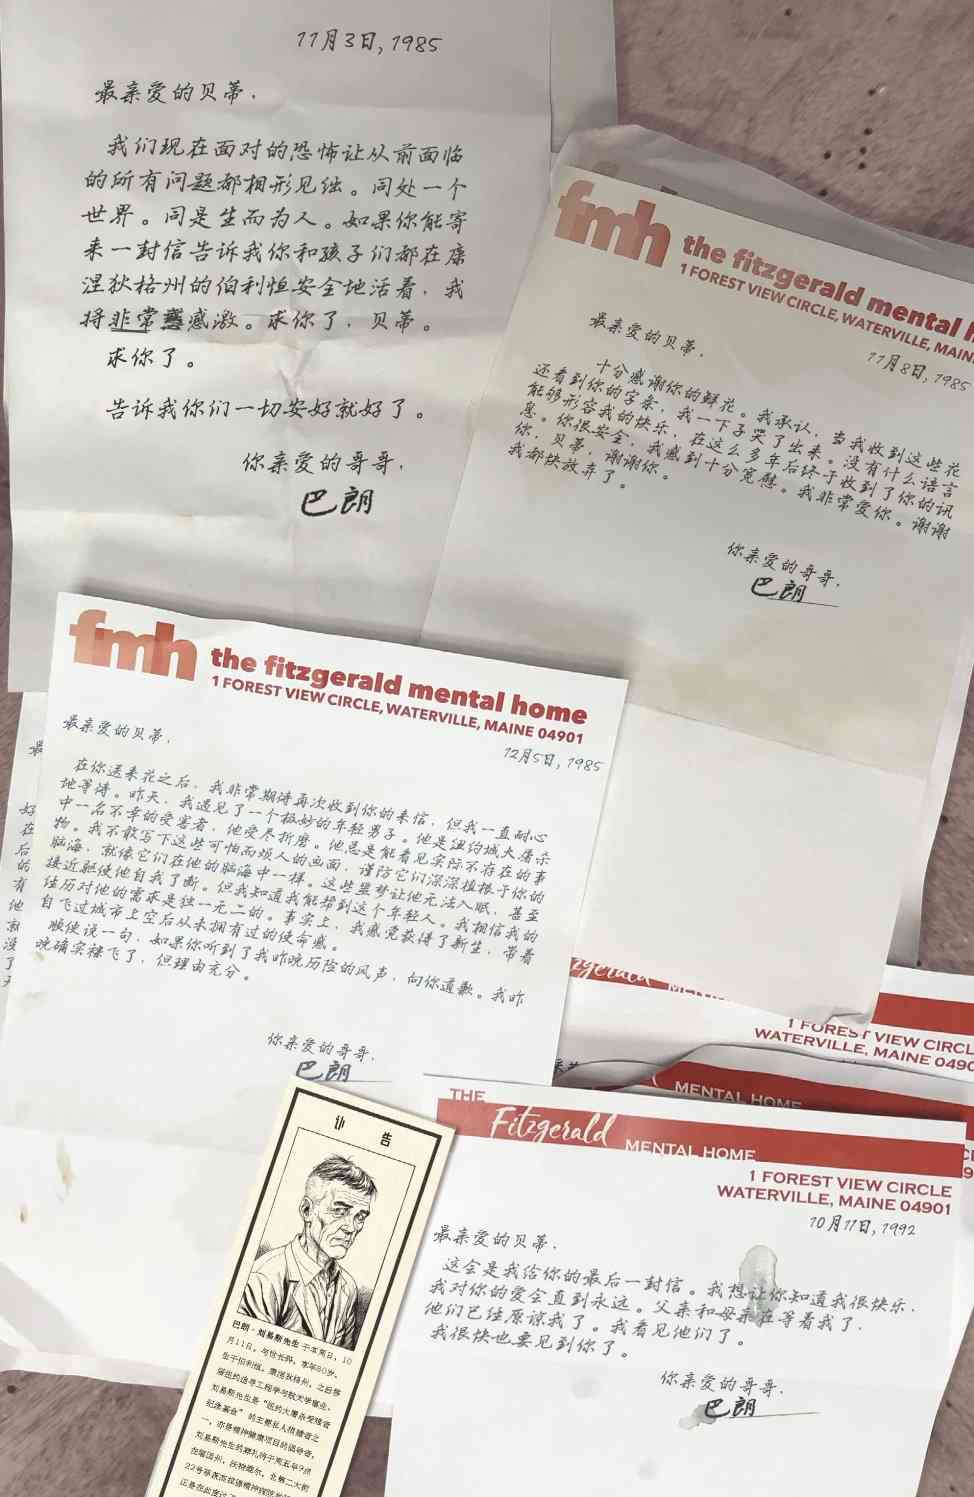 11月3日，1985
最亲爱的贝蒂，
我们现在面对的恐怖让从前面临
的所有问题都相形见绌。同处一个
世界。同是生而为人。如果你能寄
来一封信告诉我你和孩子们都在康
涅狄格州的伯利恒安全地活着，我
将非常感激。求你了，贝蒂。
求你了。
告诉我你们一切安好就好了。
你亲爱的哥哥，
巴朗
fmh
the fitzgerald mental
1 FOREST VIEW CIRCLE, WATERVILLE, MAIN
11月8日，1985
最亲爱的贝蒂，
十分感谢你的鲜花。我承认，当我收到这些花
还看到你的字条，我一下子哭了出来。没有什么语言
能够形容我的快乐，在这么多年后终于收到了你的讯
息。你很安全，我感到十分宽慰。我非常爱你。谢谢
你，贝蒂，谢谢你。
我都快放弃了。
你亲爱的哥哥，
巴朗
fmh
the fitzgerald mental home
1 FOREST VIEW CIRCLE, WATERVILLE, MAINE 04901
12月5日，1985
最亲爱的贝蒂，
在你送来花之后，我非常期待再次收到你的来信，但我一直耐心
地等待。昨天，我遇见了一个极妙的年轻男子。他是纽约城大屠杀
中一名不幸的受害者，他受尽折磨。他总是能看见实际不存在的事
物。我不敢写下这些可怕而烦人的画面，谨防它们深深植根于你的
脑海，就像它们在他的脑海中一样。这些噩梦让他无法入眠，甚至
接近驱使他自我了断。但我知道我能帮到这个年轻人。我相信我的
住历对他的需求是独一无二的。事实上，我感觉获得了新生，带着
自飞过城市上空后从未拥有过的使命感。
顺便说一句，如果你听到了我昨晚历险的风声，向你道歉。我昨
晚确实裸飞了，但理由充分。
你亲爱的哥哥，
巴朗
最
好
在
后
的
有
他
就
没
了
Fitzgerald
1 FOREST VIEW CIRCL
WATERVILLE, MAINE 0490
MENTAL HOME
THE
Fitzgerald MENTAL HOME
1 FOREST VIEW CIRCLE
WATERVILLE, MAINE 04901
10月11日，1992
最亲爱的贝蒂，
这会是我给你的最后一封信。我想让你知道我很快乐，
我对你的爱会直到永远。父亲和母亲在等着我了，
他们已经原谅我了。我看见他们了。
我很快也要见到你了。
你亲爱的哥哥，
巴朗
讣告
巴朗·刘易斯先生 于本周日，10
月11日，与世长辞，享年80岁。
生于伯利恒，康涅狄格州，之后移
居纽约追寻工程学与航天学事业。
刘易斯先生是“纽约大屠杀受难者
纪念基金”的主要私人捐赠者之
一，亦是精神健康项目的倡导者。
刘易斯先生的葬礼将于周五早9点
在缅因州，沃特维尔，北第二大街